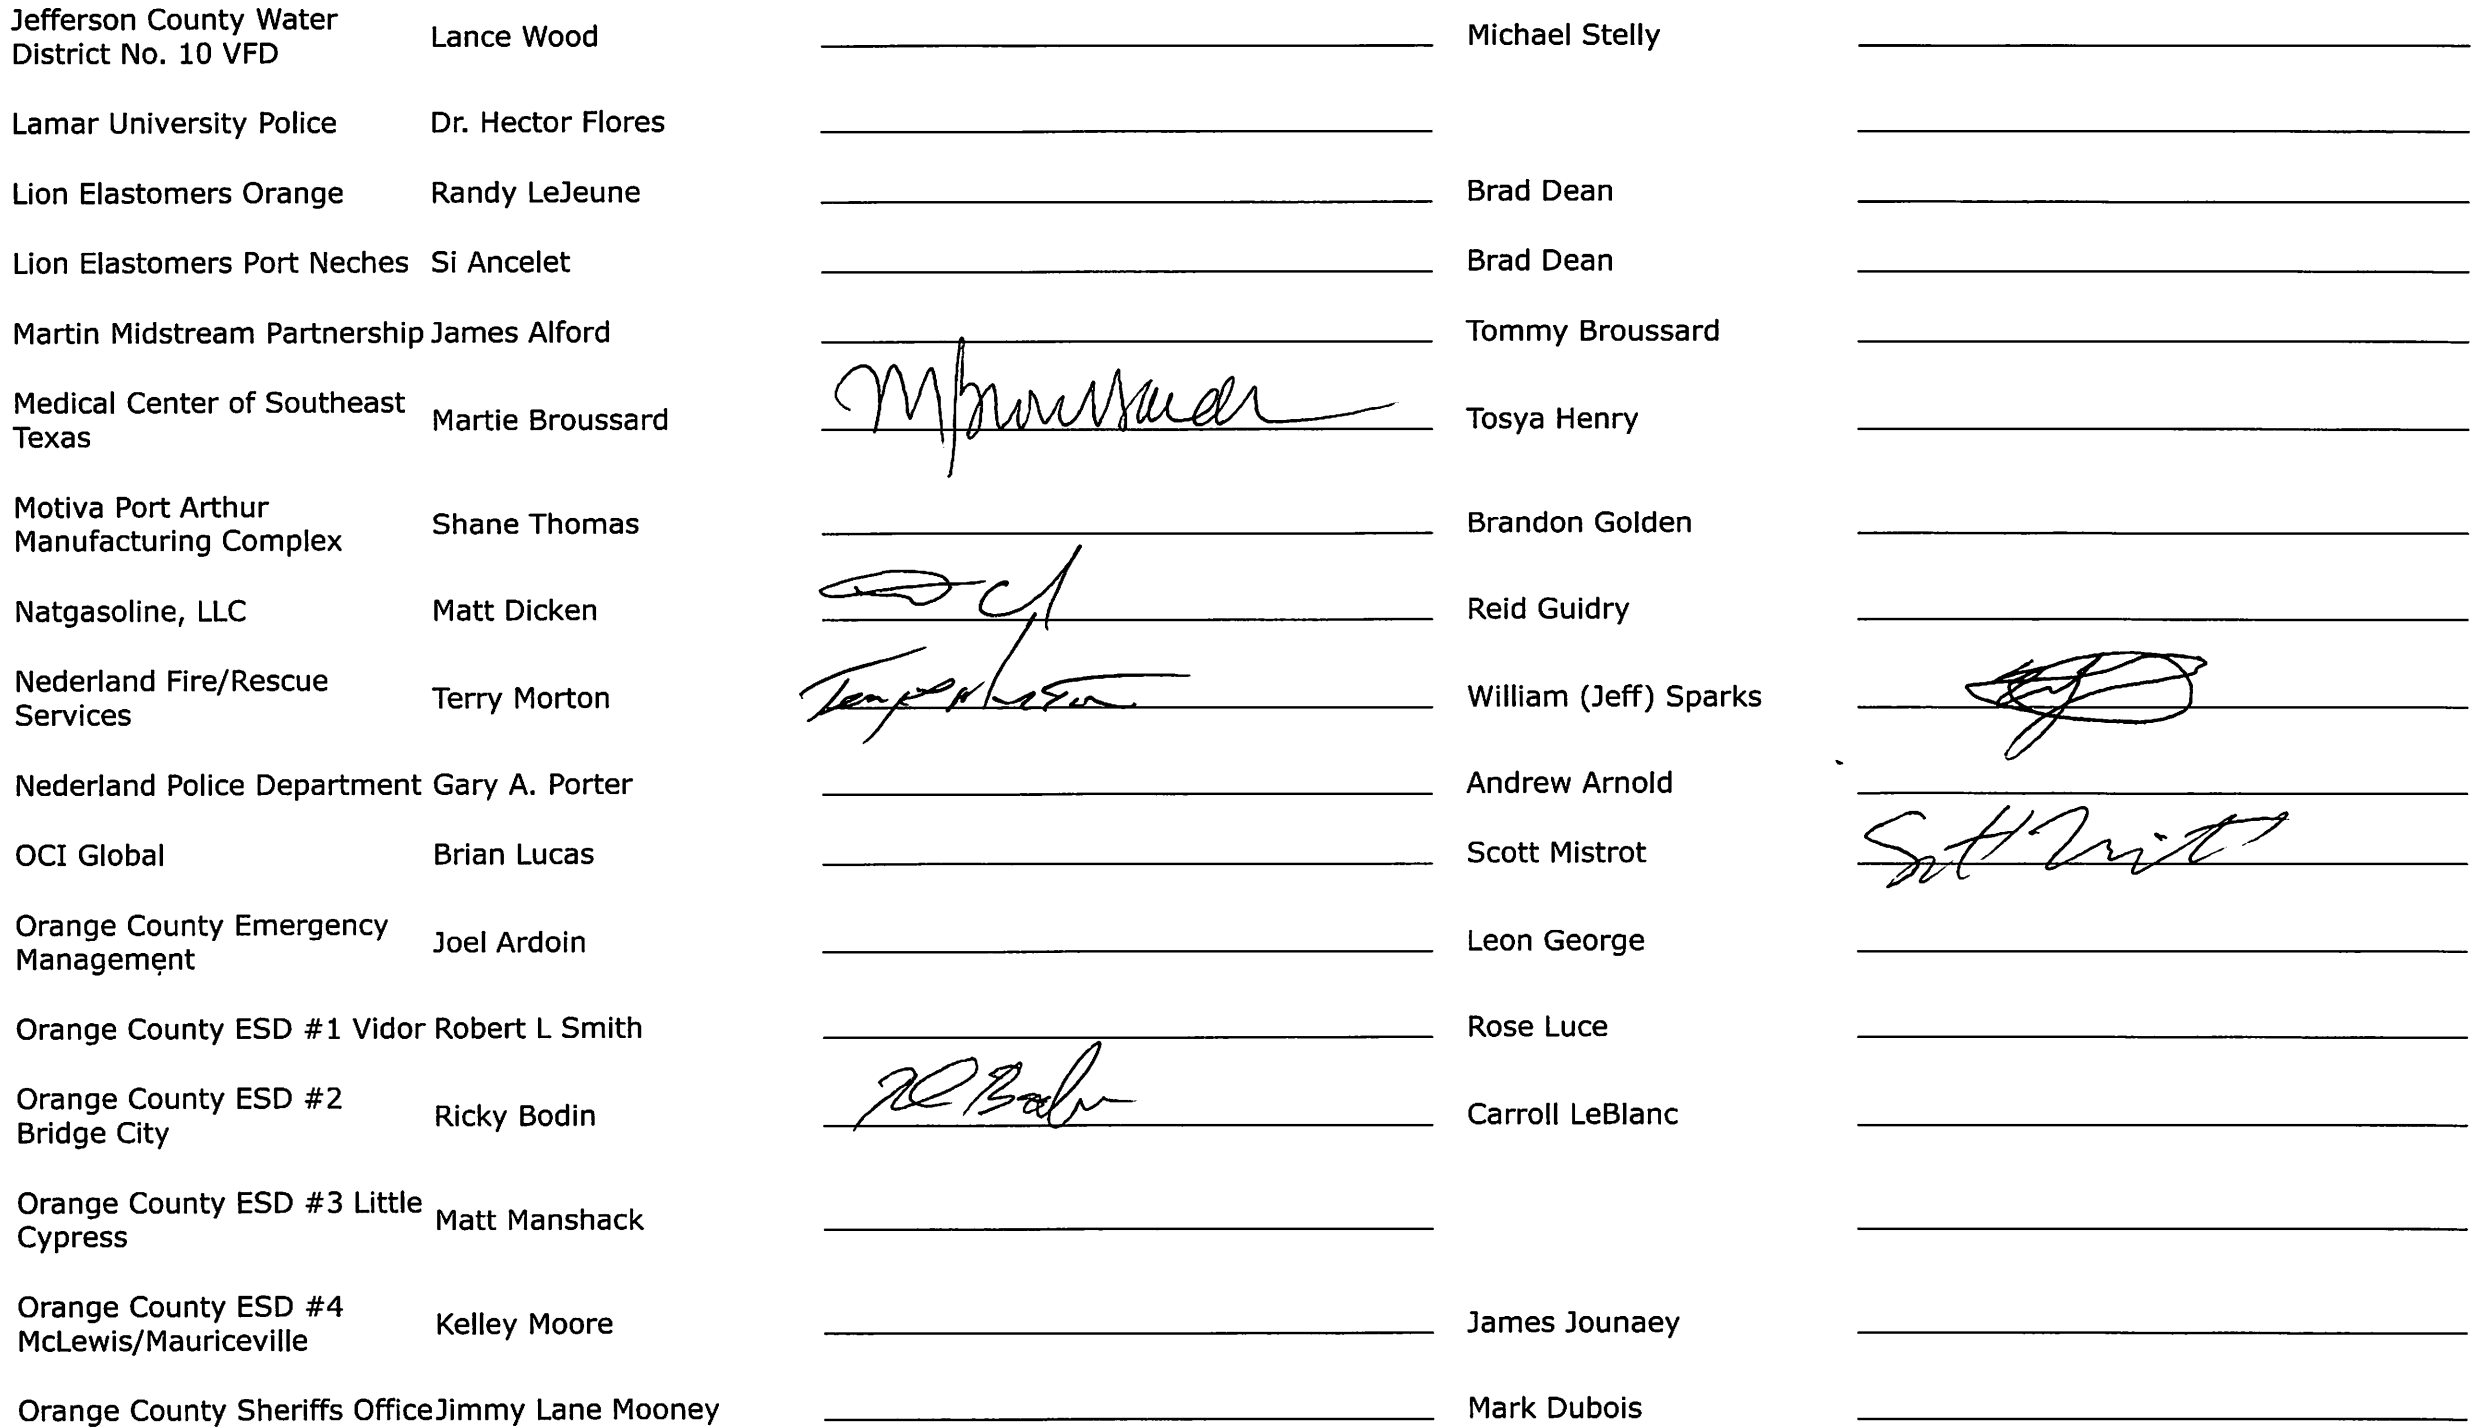 Jefferson County Water
District No. 10 VFD
Lance Wood
Michael Stelly
Lamar University Police
Dr. Hector Flores
Lion Elastomers Orange
Randy LeJeune
Brad Dean
Lion Elastomers Port Neches
Si Ancelet
Brad Dean
Martin Midstream Partnership
James Alford
Tommy Broussard
Medical Center of Southeast
Texas
Martie Broussard
M Broussard
Tosya Henry
Motiva Port Arthur
Manufacturing Complex
Shane Thomas
Brandon Golden
Natgasoline, LLC
Matt Dicken
Reid Guidry
Nederland Fire/Rescue
Services
Terry Morton
Terry Morton
William (Jeff) Sparks
Nederland Police Department
Gary A. Porter
Andrew Arnold
OCI Global
Brian Lucas
Scott Mistrot
Scott Mistrot
Orange County Emergency
Management
Joel Ardoin
Leon George
Orange County ESD #1 Vidor
Robert L Smith
Rose Luce
Orange County ESD #2
Bridge City
Ricky Bodin
Bodin
Carroll LeBlanc
Orange County ESD #3 Little
Cypress
Matt Manshack
Orange County ESD #4
McLewis/Mauriceville
Kelley Moore
James Jounaey
Orange County Sheriffs Office
Jimmy Lane Mooney
Mark Dubois